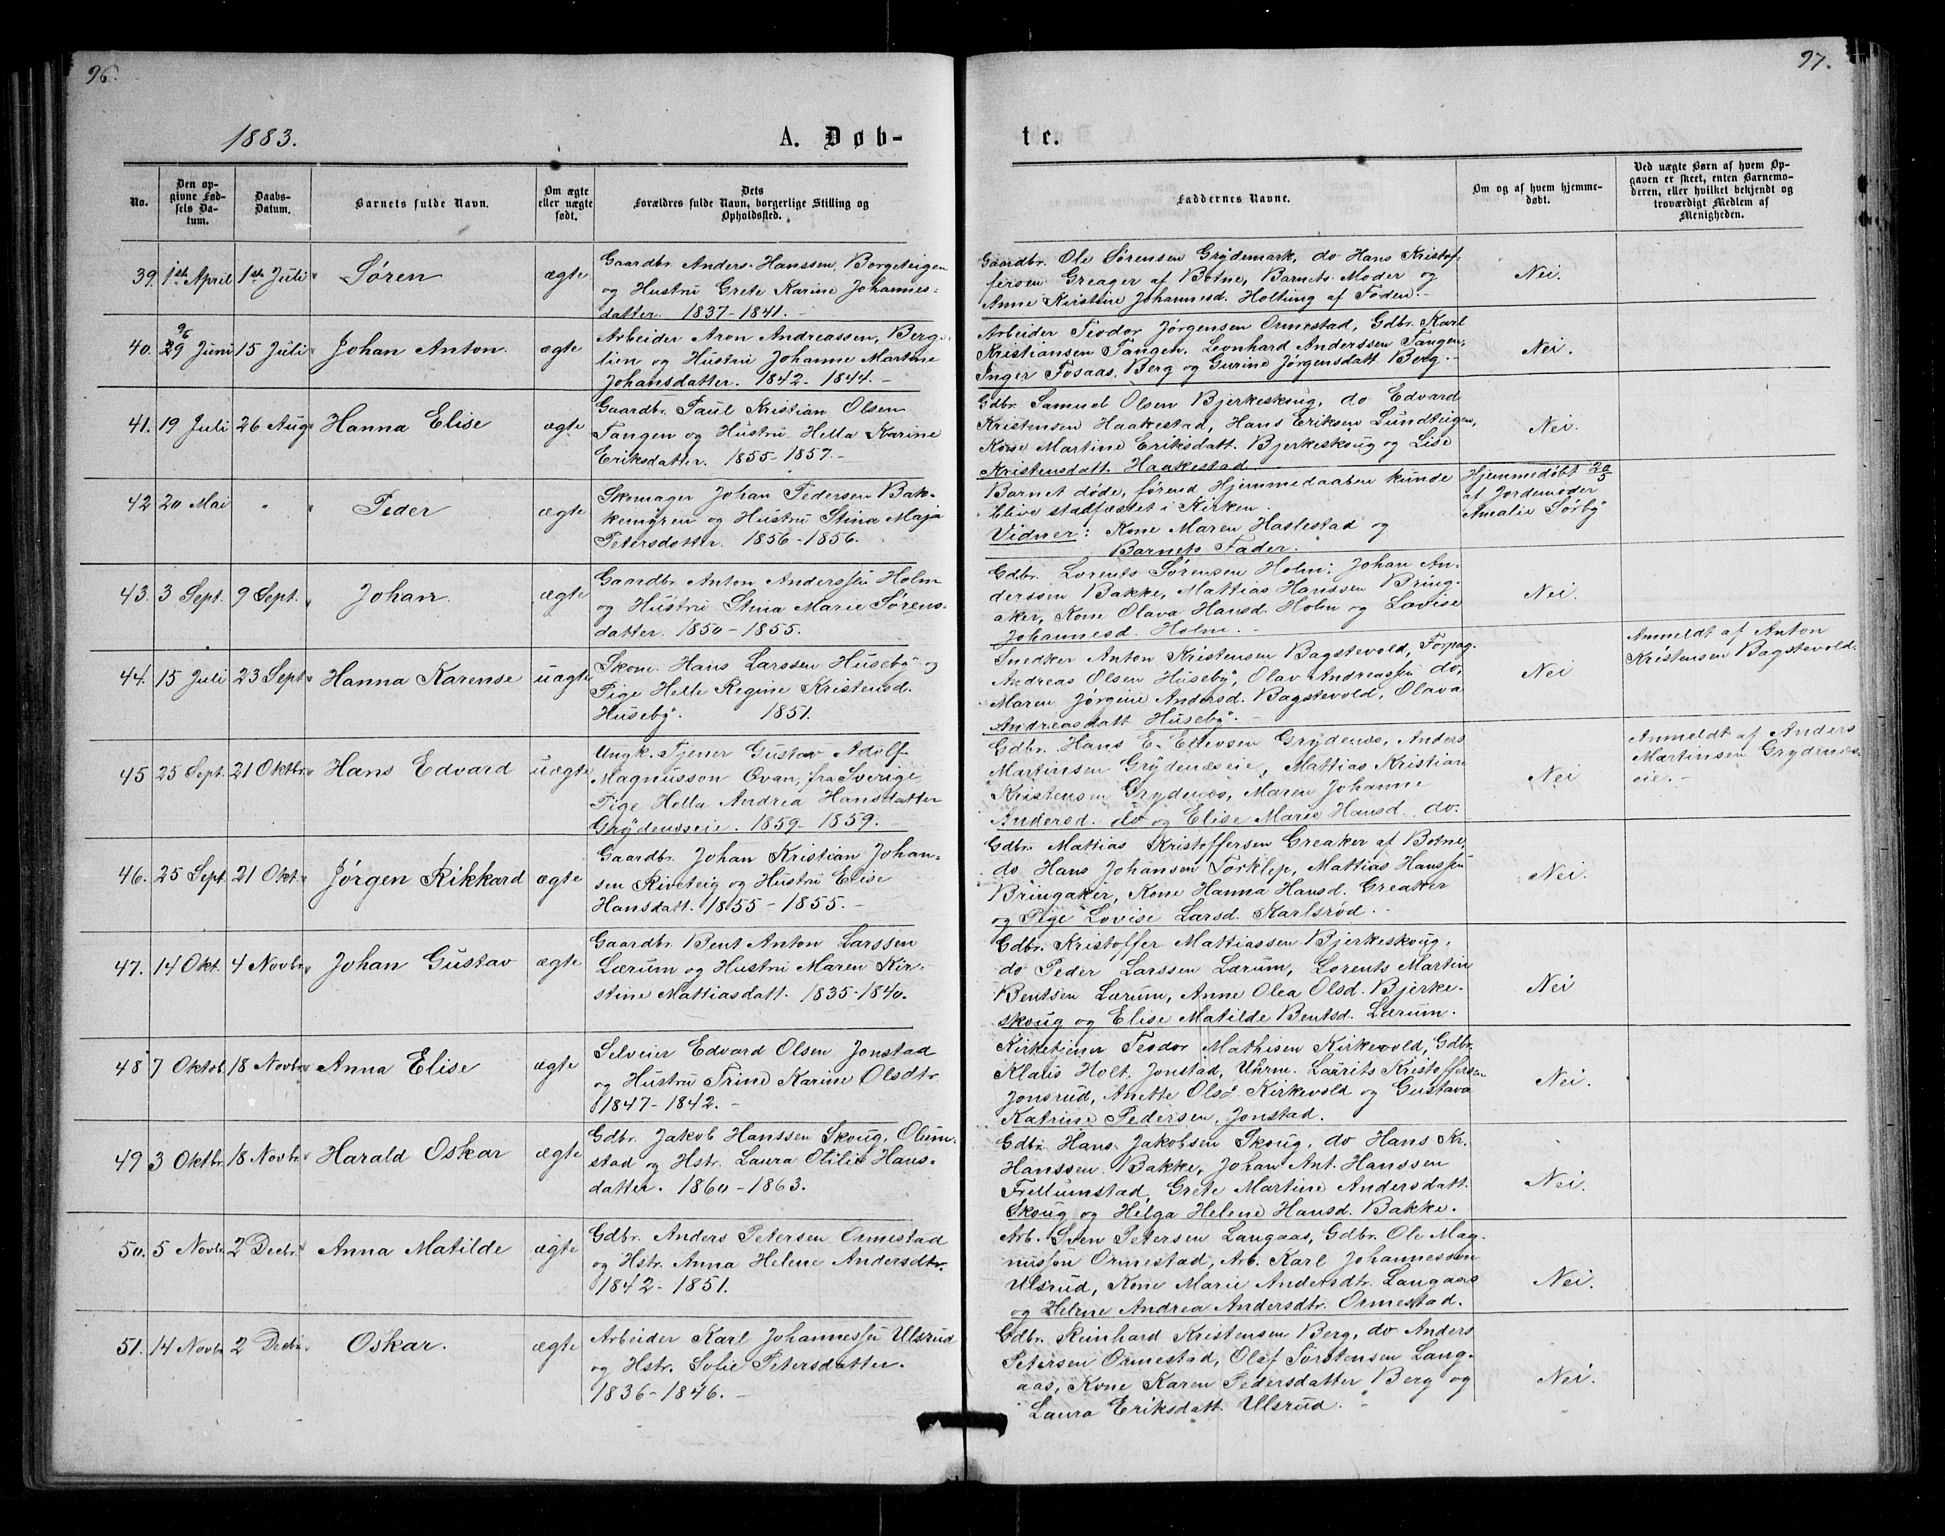 96.
1883.
A. Døb-
No.
Den op-
givne Fød-
sels Da-
tum.
Daabs-
Datum.
Barnets fulde Navn.
Om ægte
eller uægte
født.
Dets
Forældres fulde Navn, borgerlige Stilling og
Opholdssted.
39. 1ste April 1ste Juli Søren ægte
Gaardbr. Anders Hanssen, Borgeteigen
og Hustru Grete Karine Johannes-
datter. 1837-1841.
40. 29 Juni 15 Juli Johan Anton. ægte
Arbeider Aron Andreassen, Berg-
lien og Hustru Johanne Martine
Johansdatter. 1842-1844.
41. 19 Juli 26 Aug Hanna Elise ægte
Gaardbr. Paul Kristian Olsen
Tangen og Hustru Hella Karine
Eriksdatter. 1855-1857.
42 20 Mai " " Peder ægte
Skomager Johan Pedersen Bak-
kemyren og Hustru Stina Maja
Petersdatter. 1856-1856.
43. 3 Sept. 9 Sept. Johan ægte
Gaardbr. Anton Anderssen Holm
og Hustru Stina Marie Sørens-
datter. 1850-1855.
44. 15 Juli 23 Sept Hanna Karense uægte
Skom. Hans Larssen Huseby og
Pige Helle Regine Kristensd.
Huseby. 1851.
45 25 Sept. 21 Oktbr Hans Edvard uægte
Ungk. Tjener Gustav Adolf
Magnusson Ovan, fra Sverige
Pige Hella Andrea Hansdatter
Grydenæseie. 1859-1859.
46. 25 Sept. 21 Okt. Jørgen Rikkard ægte
Gaardbr. Johan Kristian Johan-
sen Riveteig og Hustru Elise
Hansdatt. 1855-1855.
47. 14 Okt. 4 Novbr Johan Gustav ægte
Gaardbr. Bent Anton Larssen
Lærum og Hustru Maren Kir-
stine Mattiasdatt. 1835-1840.
48 7 Oktob 18 Novbr Anna Elise ægte
Selveier Edvard Olsen Jonstad
og Hustru Trine Karine Olsdtr.
1847-1842.
49 3 Oktbr. 18 Novbr. Harald Oskar ægte
Gdbr. Jakob Hanssen Skoug, Olum-
stad og Hstr. Laura Otilie Hans-
datter. 1860-1863.
50. 5 Novbr. 2 Decbr. Anna Matilde ægte
Gdbr. Anders Petersen Ormestad
og Hstr. Anna Helene Andersdtr.
1842-1851.
51. 14 Novbr 2 Decbr. Oskar. ægte
Arbeider Karl Johannessen Ulsrud
og Hstr. Sofie Petersdatter.
1836-1846.
97.
te.
Faddernes Navne.
Om og af hvem hjemme-
døbt.
Ved uægte Børn af hvem Op-
gaven er skeet, enten Barnemo-
deren, eller hvilket bekjendt og
troværdigt Medlem af
Menigheden.
Gaardbr. Ole Sørensen Grydemark, do Hans Kristof-
fersen Greager af Botne, Barnets Moder og
Anne Kirstine Johannesd. Holtung af Foden.
Nei.
Arbeider Teodor Jørgensen Ormestad, Gdbr. Karl
Kristiansen Tangen, Leonhard Anderssen Tangen,
Inger Fosaas, Berg og Gurine Jørgensdatt Berg.
Nei.
Gdbr. Samuel Olsen Bjerkeskoug, do Edvard
Kristensen Haakestad, Hans Eriksen Lundteigen,
Kone Martine Eriksdatt. Bjerkeskoug og Lise
Kristensdatt. Haakestad
Nei.
Barnet døde, førend Hjemmedaaben kunde
blive stadfæstet i Kirken.
Vidner: Kone Maren Haslestad og
Barnets Fader.
Hjemmedøbt 20/5
af Jordemoder
Amalie Sørby
Gdbr. Lorents Sørensen Holm, Johan An-
derssen Bakke, Mattias Hanssen Bring-
aker, Kone Olava Hansd. Holm og Lovise
Johannesd. Holm.
Nei.
Snedker Anton Kristensen Bagstevold, Forpag.
Andreas Olsen Huseby, Olav Andreassen do,
Maren Jørgine Andersd. Bagstevold, Olava
Andreasdatt Huseby.
Nei
Anmeldt af Anton
Kristensen Bagstevold.
Gdbr. Hans E. Ellevsen Grydenæs, Anders
Martinsen Grydenæseie, Mattias Kristian
Kristensen Grydenæs, Maren Johanne
Andersd. do og Elise Marie Hansd. do.
Nei
Anmeldt af Anders
Martinsen Grydenæs-
eie.
Gdbr. Mattias Kristoffersen Greaker af Botne,
do. Hans Johansen Torklep, Mattias Hanssen
Bringaker, Kone Hanna Hansd. Greaker
og Pige Lovise Larsd. Karlsrød.
Nei.
Gdbr. Kristoffer Mattiassen Bjerkeskoug,
do Peder Larssen Lærum, Lorents Martin
Bentsen Lærum, Anne Olea Olsd. Bjerke-
skoug og Elise Matilde Bentsd. Lærum.
Nei
Kirketjener Teodor Mathisen Kirkevold, Gdbr
Klaus Holt. Jonstad, Uhrm. Laurits Kristoffersen
Jonsrud, Anette Olsd. Kirkevold og Gustava
Katrine Pedersen, Jonstad.
Nei.
Gdbr. Hans Jakobsen Skoug, do Hans Kr.
Hanssen. Bakke, Johan Ant. Hanssen
Frellumstad, Grete Martine Andersdatt.
Skoug og Helga Helene Hansd. Bakke.
Nei.
Arb. Sven Petersen Langaas, Gdbr. Ole Mag-
nussen Ormestad, Arb. Karl Johannessen
Ulsrud, Kone Marie Andersdtr. Langaas
og Helene Andrea Andersdtr. Ormestad.
Nei.
Gdbr. Reinhard Kristensen Berg, do Anders
Petersen Ormestad, Olaf Torstensen Lang-
aas, Kone Karen Pedersdatter Berg og
Laura Eriksdatt. Ulsrud.
Nei.